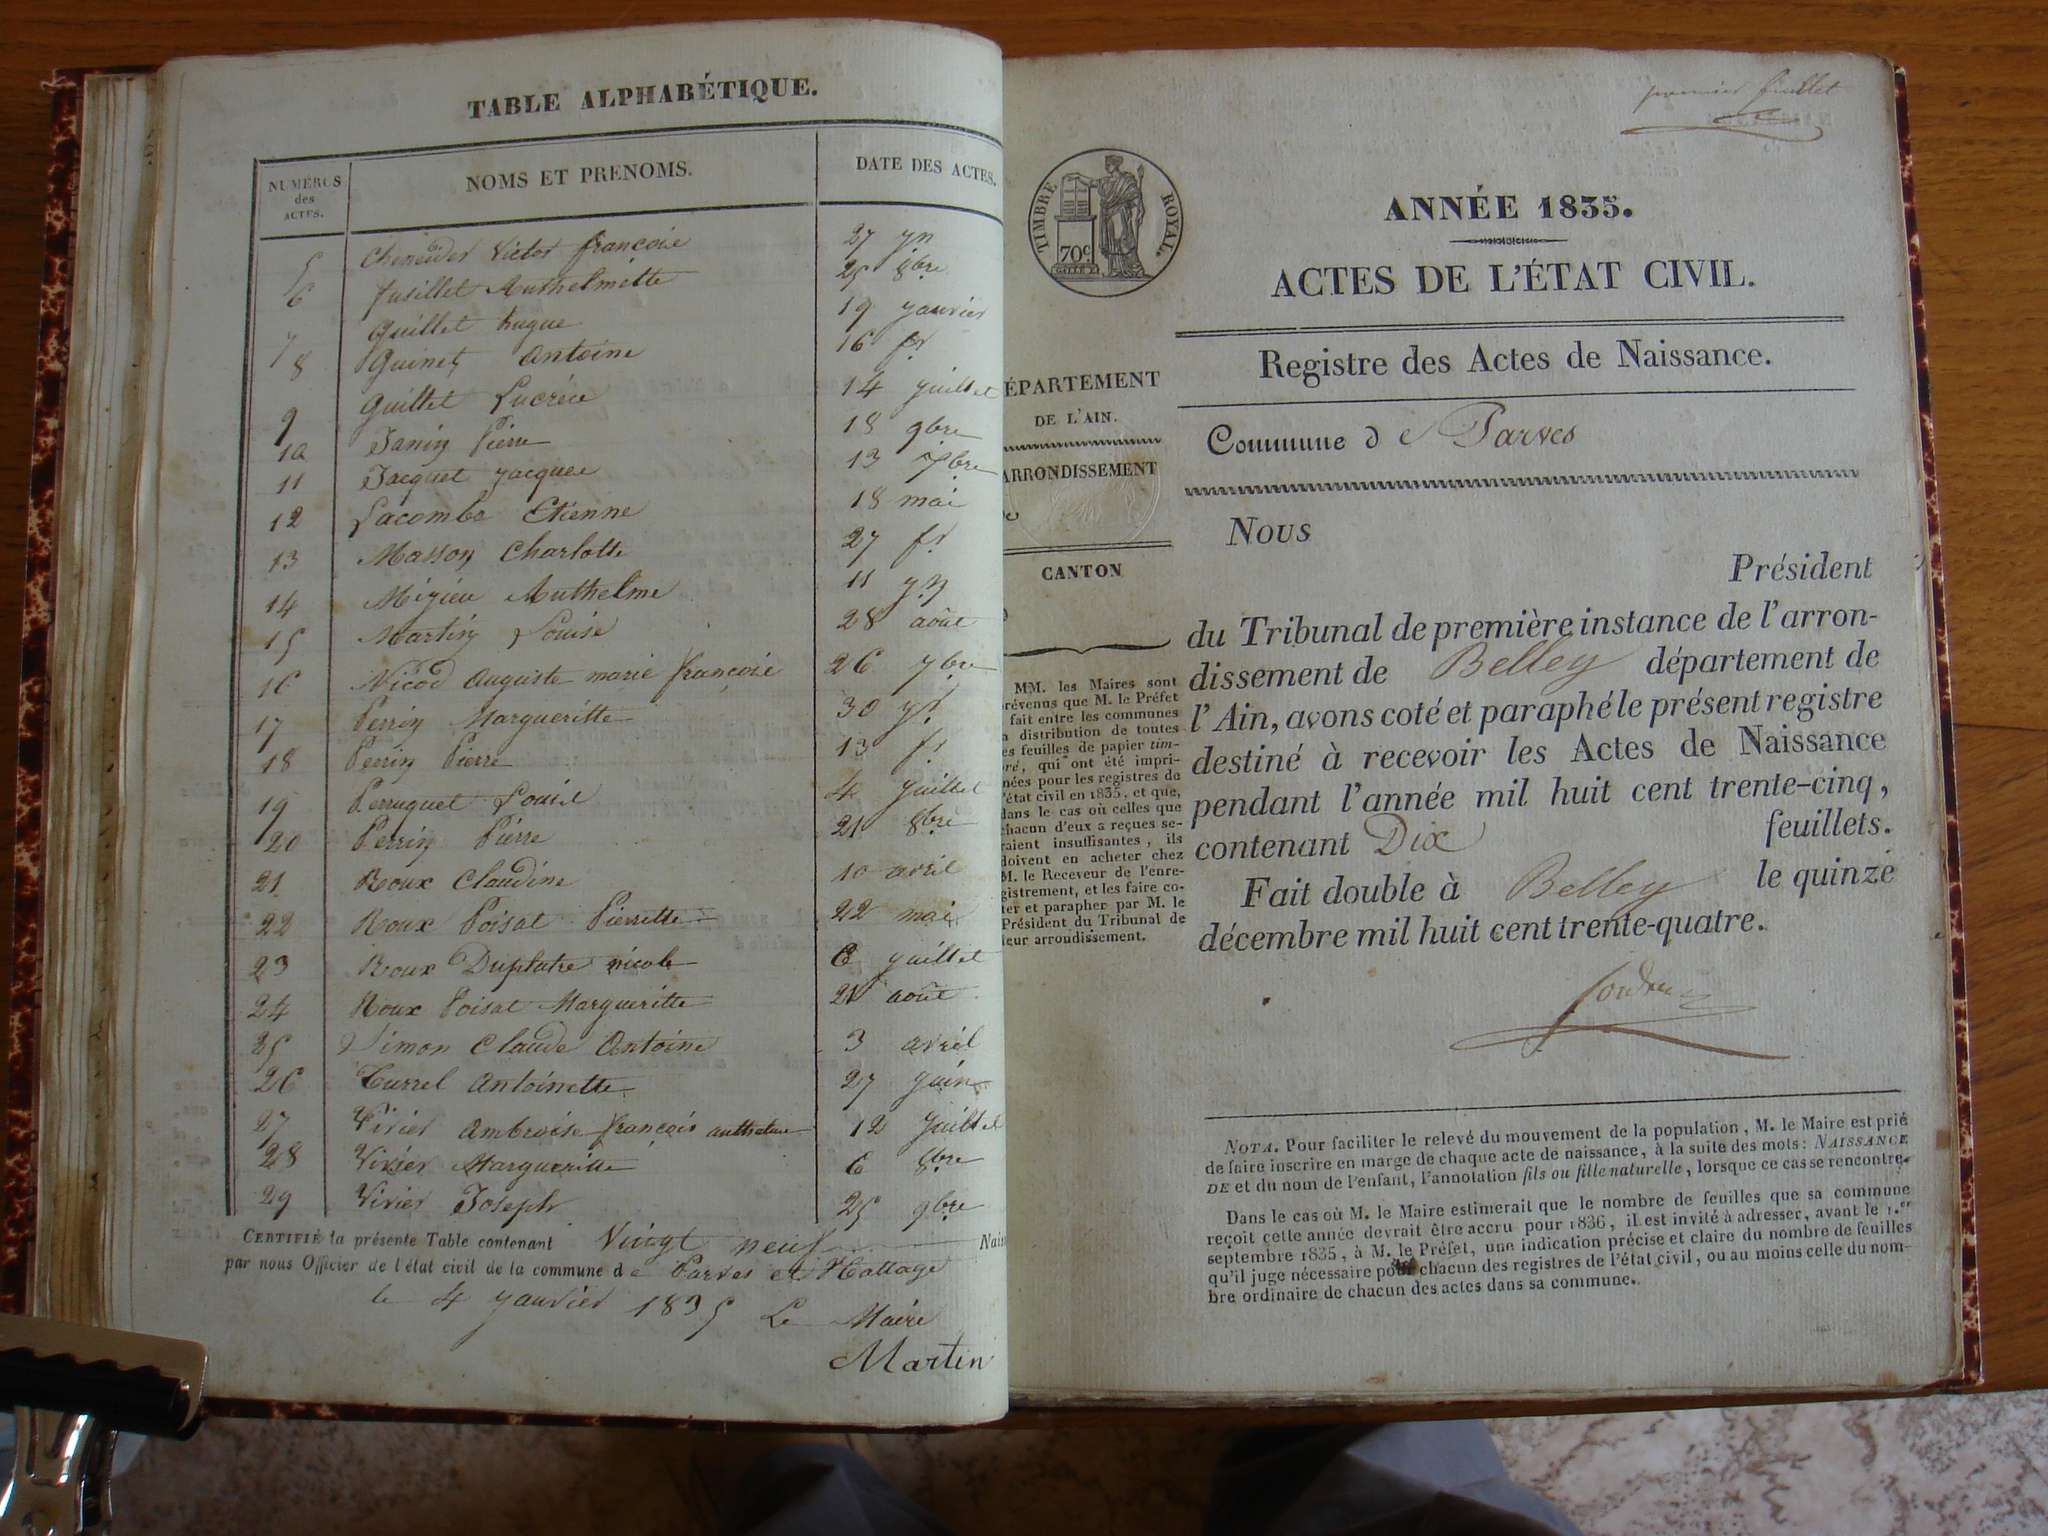 TABLE ALPHABÉTIQUE.
NUMÉROS des ACTES. NOMS ET PRENOMS. DATE DES ACTES.
5 Victor françoise 27
6 fusillet Anthelmette 25 8bre
7 Guillet hugue 19 janvier
8 Guinet antoine 16 fr
9 Guillet Lucréce 14 juillet
10 Janin Pierre 18 9bre
11 Jacquet jacques 13
12 Lacombe Etienne 18 mai
13 Masson Charlotte 27 fr
14 Mizieu Anthelme 11
15 Martin Louise 28 août
16 Nicod auguste marie françoise 26
17 Perrin Margueritte 30
18 Perrin Pierre 13 fr
19 Perruquet Louise 4 juillet
20 Perrin Pierre 21 8bre
21 Roux Claudine 10 avril
22 Roux Poisat Pierrette 22 mai
23 Roux Duplatre nicole 6 juillet
24 Roux Poisat Margueritte 21 août
25 Simon Claude Antoine 3 avril
26 Curtel Antoinette 27 juin
27 Vivier Ambroise françois anthelme 12 juillet
28 Vivier Margueritte 6 8bre
29 Vivier Joseph 25 9bre
CERTIFIÉ la présente Table contenant Vingt neuf Nais
par nous Officier de l'état civil de la commune de Parves et Nattage
le 4 janvier 1835 Le Maire
Martin
premier feuillet
TIMBRE ROYAL.
70c
ANNÉE 1835.
ACTES DE L'ÉTAT CIVIL.
Registre des Actes de Naissance.
ÉPARTEMENT
DE L'AIN.
Commune de Parves
ARRONDISSEMENT
CANTON
MM. les Maires sont
révenus que M. le Préfet
fait entre les communes
a distribution de toutes
es feuilles de papier tim-
ré, qui ont été impri-
mées pour les registres de
l'état civil en 1835, et que,
dans le cas où celles que
chacun d'eux a reçues se-
raient insuffisantes, ils
doivent en acheter chez
M. le Receveur de l'enre-
gistrement, et les faire co-
ter et parapher par M. le
Président du Tribunal de
leur arrondissement.
Nous
Président
du Tribunal de première instance de l'arron-
dissement de Belley département de
l'Ain, avons coté et paraphé le présent registre
destiné à recevoir les Actes de Naissance
pendant l'année mil huit cent trente-cinq,
contenant Dix feuillets.
Fait double à Belley le quinze
décembre mil huit cent trente-quatre.
NOTA. Pour faciliter le relevé du mouvement de la population, M. le Maire est prié
de faire inscrire en marge de chaque acte de naissance, à la suite des mots: NAISSANCE
DE et du nom de l'enfant, l'annotation fils ou fille naturelle, lorsque ce cas se rencontre.
Dans le cas où M. le Maire estimerait que le nombre de feuilles que sa commune
reçoit cette année devrait être accru pour 1836, il est invité à adresser, avant le 1.er
septembre 1835, à M. le Préfet, une indication précise et claire du nombre de feuilles
qu'il juge nécessaire pour chacun des registres de l'état civil, ou au moins celle du nom-
bre ordinaire de chacun des actes dans sa commune.